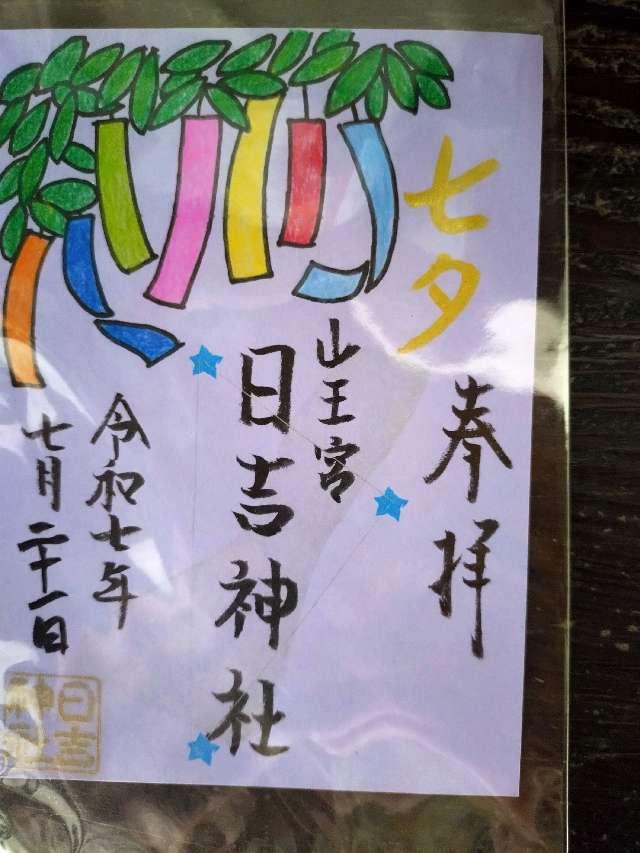 七夕
奉拝
山王宮
日吉神社
令和七年
七月二十一日
日吉
神社